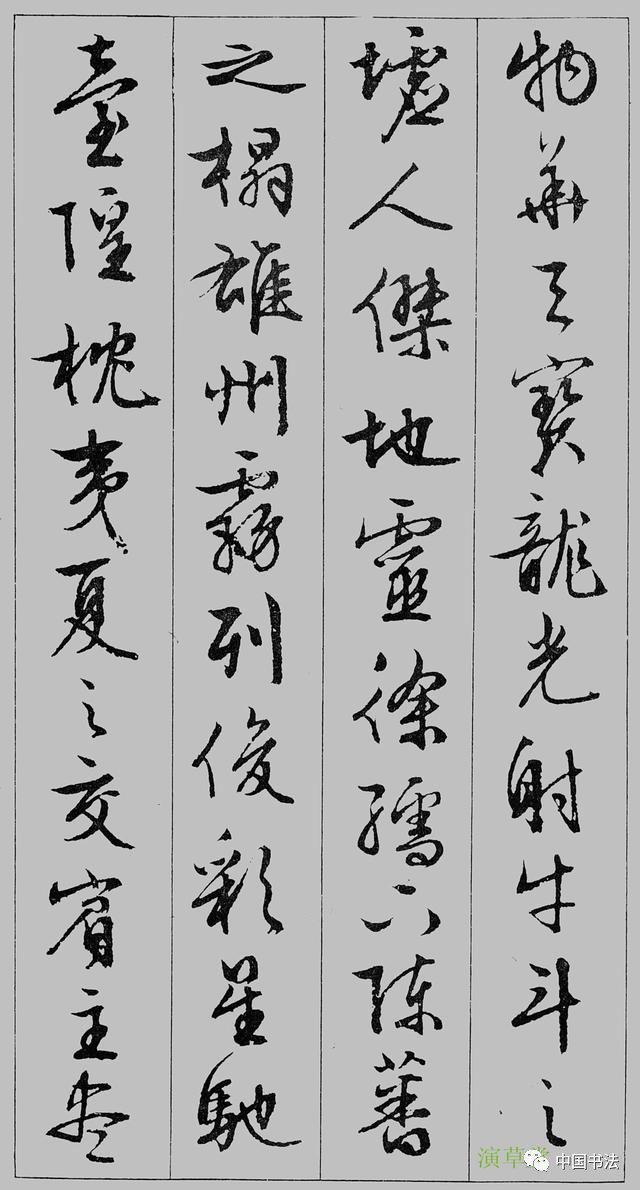 物華天寶龍光射牛斗之
墟人傑地靈徐孺下陳蕃
之榻雄州霧列俊彩星馳
臺隍枕夷夏之交賓主盡
演草堂
中国书法